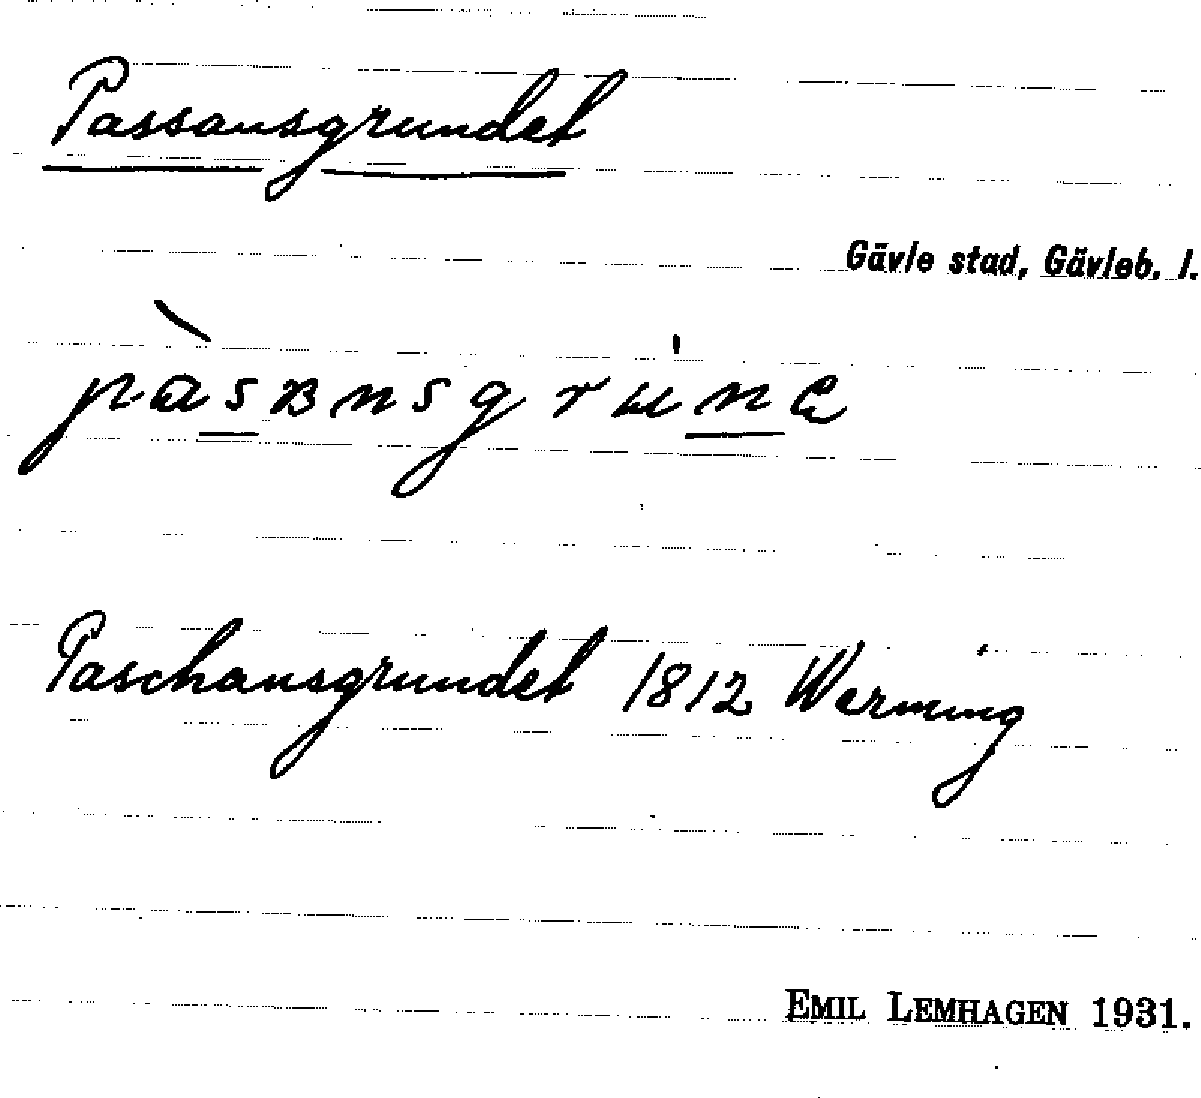 Passansgrundet
Gävle stad, Gävleb. l.
Paschansgrundet 1812 Werming
EMIL LEMHAGEN 1931.